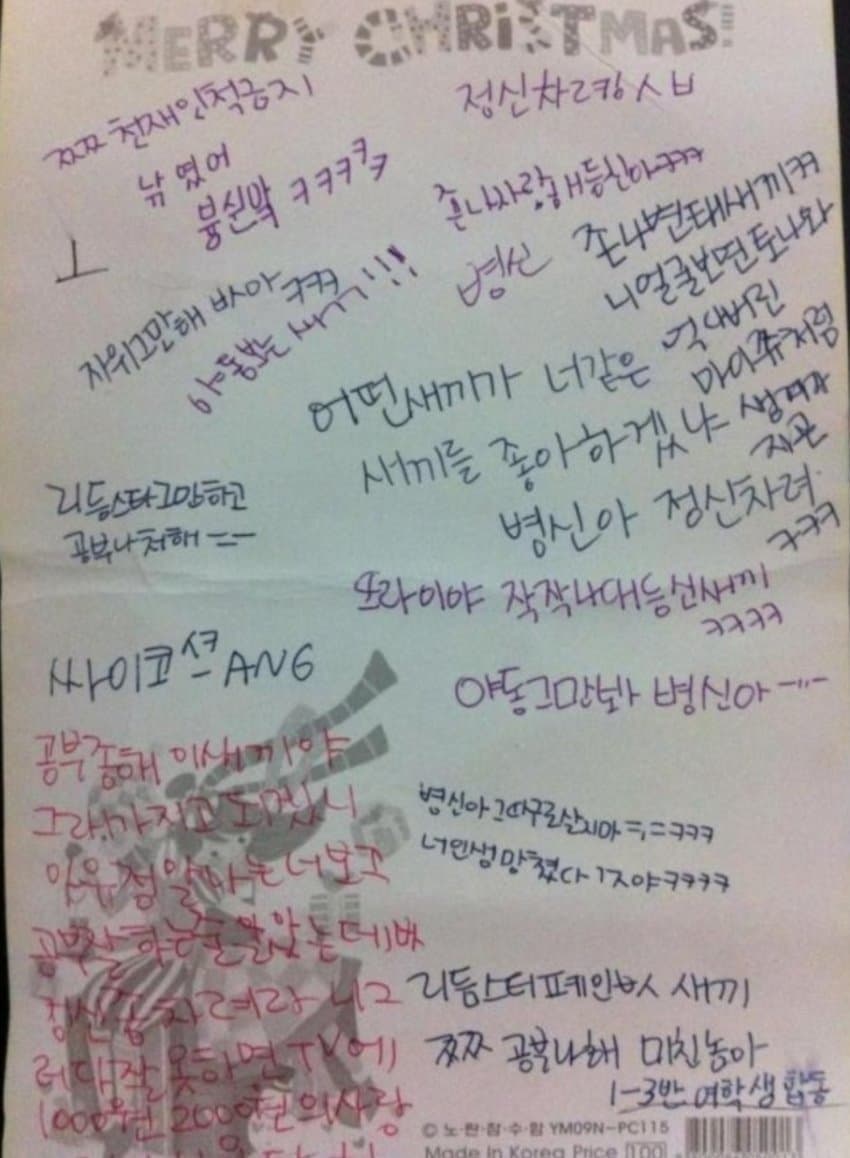 MERRY CHRISTMAS!
쯔쯔 천재인척금지
정신차려 ㅅㅂ
낚였어
븅신막 ㅋㅋㅋㅋㅋ
존나사랑해등신아ㅋㅋㅋ
병신
존나변태새끼ㅋㅋ
니얼굴보면토나와
ㅗ
자위그만해 ㅋㅋㅋ
야동보는 새끼!!!
어떤새끼가 너같은
새끼를 좋아하겠냐
마이쮸처럼
생겨가
지곤
병신아 정신차려
ㅋㅋㅋ
리듬스타그만하고
공부나처해 ㅡㅡ
또라이야 작작나대등신새끼
ㅋㅋㅋㅋ
싸이코
ANG
야동그만봐 병신아 ㅡㅡ
공부좀해 이새끼야
그래가지고 되겠니
너보고
공부잘하는줄알았는데
정신좀차려라 니그
러다잘못하면 TV에
1000원 2000원의사랑
병신아 그따구로살지마 ㅋㅋㅋ
너인생망쳤다 ㅋㅋㅋㅋ
리듬스타폐인 새끼
쯔쯔 공부나해 미친놈아
1-3반 여학생 합동
© 노·란·잠·수·함 YM09N-PC115
Made In Korea Price 100